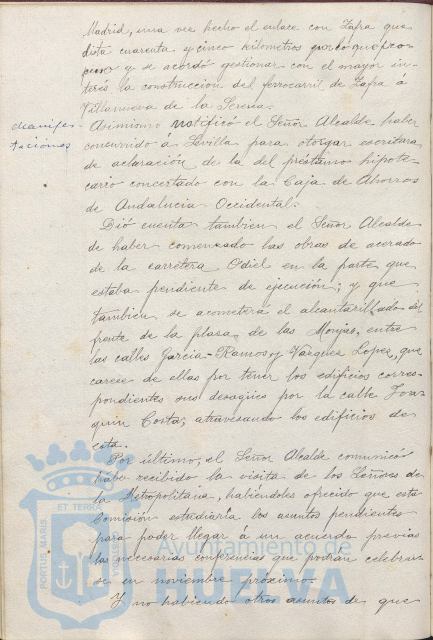 Madrid, una vez hecho el enlace con Zafra que
dista cuarenta y cinco kilómetros
y se acordó gestionar con el mayor in-
terés la construcción del ferrocarril de Zafra á
Villanueva de la Serena.
Manifes-
taciones
Asimismo notificó el Señor Alcalde haber
concurrido á Sevilla para otorgar escritura
de aclaración de la del préstamo hipote-
cario concertado con la Caja de Ahorros
de Andalucia Occidental.
Dió cuenta tambien el Señor Alcalde
de haber comenzado las obras de acerado
de la carretera Odiel en la parte que
estaba pendiente de ejecución; y que
tambien se acometerá el alcantarillado del
frente de la plaza de las Monjas, entre
las calles Garcia-Ramos y Vazquez Lopez, que
carece de ellas por tener los edificios corres-
pondientes sus desagües por la calle Joa-
quin Costa, atravesando los edificios de
esta.
Por último, el Señor Alcalde comunicó
haber recibido la visita de los Señores de
la Metropolitana, habiendoles ofrecido que esta
Comisión estudiaria los asuntos pendientes
para poder llegar á un acuerdo previas
las necesarias conferencias que podrán celebrar-
se en noviembre próximo.
Y no habiendo otros asuntos de que
PORTUS MARIS ET TERRÆ
Ayuntamiento de
HUELVA